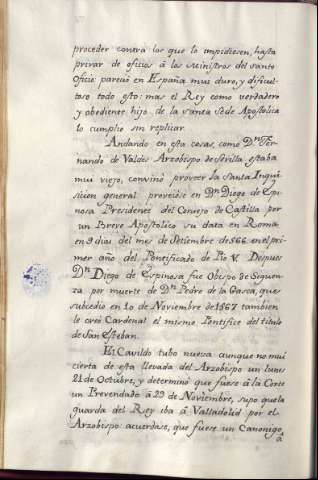 proceder contra los que lo impidiesen, hasta
privar de oficios â los Ministros del santo
Oficio pareció en España mui duro, y dificul-
toso todo esto; mas el Rey como verdadero
y obediente hijo de la santa Sede Apostolica
lo cumplio sin replicar.
Andando en esta cosas, como Dn. Fer-
nando de Valdes Arzobispo de Sevilla estaba
mui viejo, convinò proveer la Santa Inqui-
sicion general proveiose en Dn. Diego de Espi-
nosa Presidente del Consejo de Castilla por
un Breve Apostolico su data en Roma
en 9 dias del mes de Setiembre de 566. en el pri-
mer año del Pontificado de Pio V. Despues
Dn. Diego de Espinosa fue Obispo de Siguen-
za por muerte de Dn. Pedro de la Gasca, que
subcedio en 10 de Noviembre de 1567 tambien
le creó Cardenal el mismo Pontifice del titulo
de San Esteban.
El Cavildo tubo nueva aunque no mui
cierta de esta llevada del Arzobispo un lunes
21 de Octubre, y determinó que fuese â la Corte
un Prevendado â 29 de Noviembre, supo que la
guarda del Rey iba â Valladolid por el
Arzobispo acuerdase, que fuese un Canonigo
â